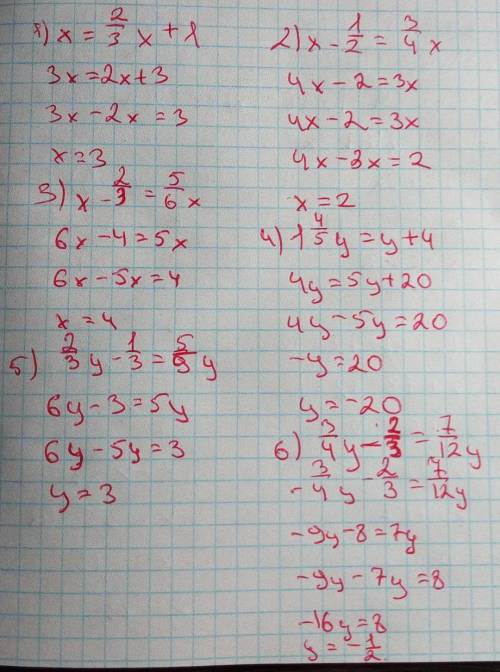 1) x = 2/3 x + 1
3x = 2x + 3
3x - 2x = 3
x = 3
2) x - 1/2 = 3/4 x
4x - 2 = 3x
4x - 2 = 3x
4x - 3x = 2
x = 2
3) x - 2/3 = 5/6 x
6x - 4 = 5x
6x - 5x = 4
x = 4
4) 1 4/5 y = y + 4
4y = 5y + 20
4y - 5y = 20
-y = 20
y = -20
5) 2/3 y - 1/3 = 5/9 y
6y - 3 = 5y
6y - 5y = 3
y = 3
6) 3/4 y - 2/3 = 7/12 y
- 3/4 y - 2/3 = 7/12 y
-9y - 8 = 7y
-9y - 7y = 8
-16y = 8
y = - 1/2